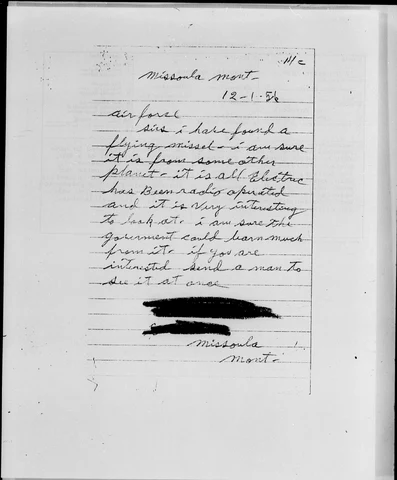 M/c
Missoula mont-
12-1-56
air force
sirs i have found a
flying missel- i am sure
it is from some other
planet- it is all Electric
has Been radio operated
and it is very interesting
to look at- i am sure the
goverment could learn much
from it- if you are
interested send a man to
see it at once
Missoula
Mont-